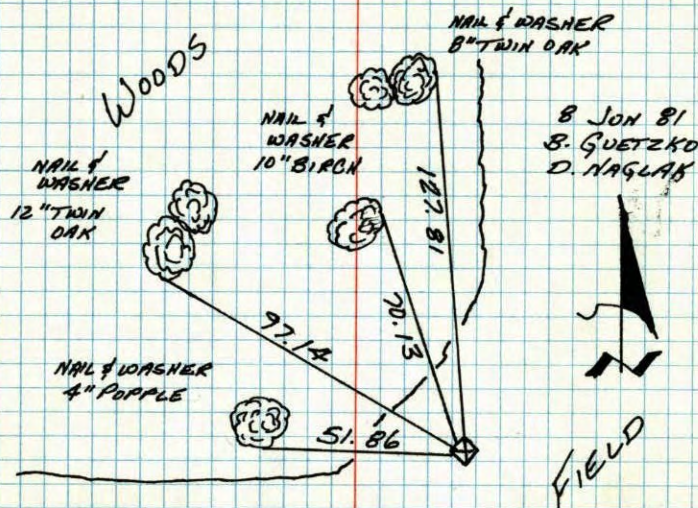 WOODS
NAIL & WASHER
8" TWIN OAK
NAIL &
WASHER
10" BIRCH
8 JUN 81
B. GUETZKO
D. NAGLAK
NAIL &
WASHER
12" TWIN
OAK
127.81
70.13
97.14
NAIL & WASHER
4" POPPLE
51.86
N
FIELD